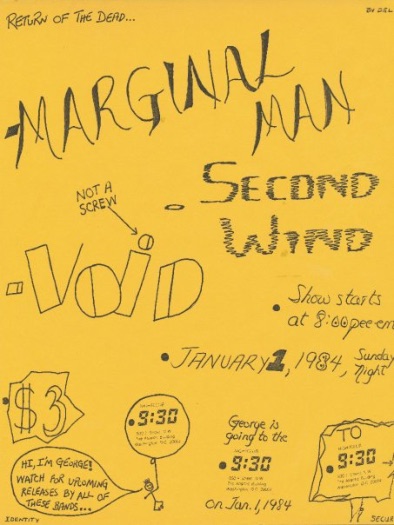 RETURN OF THE DEAD...
BY DSL
MARGINAL
MAN
SECOND
WIND
NOT A
SCREW
VOID
Show starts
at 8:00pee-em
JANUARY 1, 1984, Sunday
Night
$3
9:30
George is
going to the
9:30
on Jan. 1, 1984
TO
9:30
HI, I'M GEORGE!
WATCH FOR UPCOMING
RELEASES BY ALL OF
THESE BANDS...
IDENTITY
SECUR